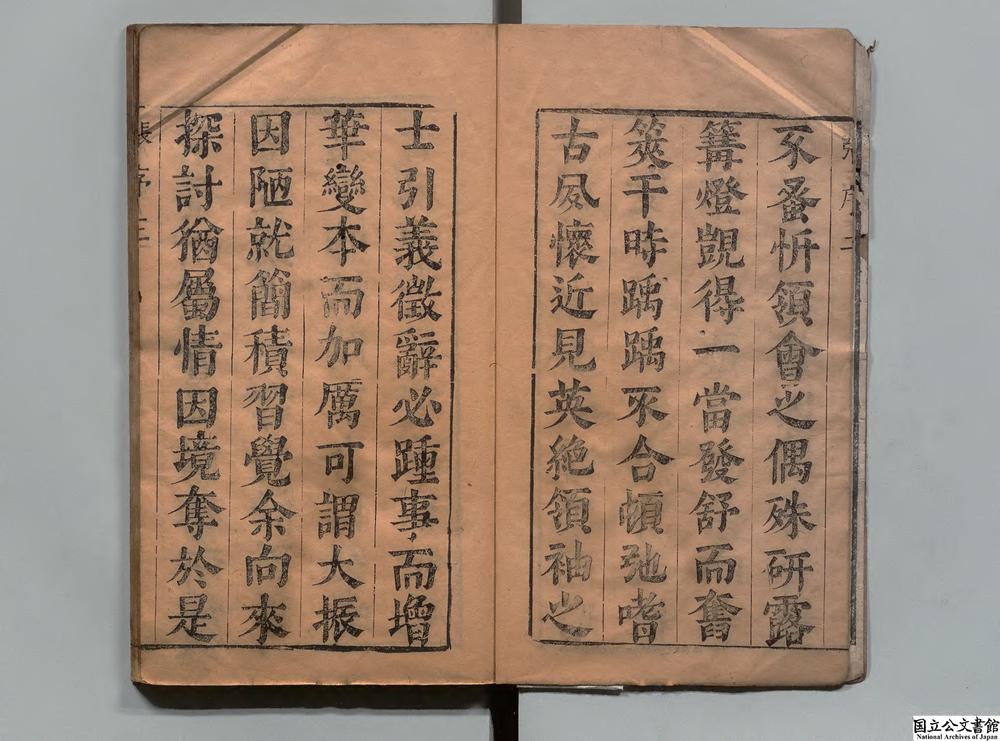 不蚤忻領會之偶殊研露
篝燈覬得一當發舒而奮
筴干時踽踽不合頓弛嗜
古夙懷近見英絶領袖之
士引義徵辭必踵事而增
華變本而加厲可謂大振
因陋就簡積習覺余向來
探討猶屬情因境奪於是
国立公文書館
National Archives of Japan